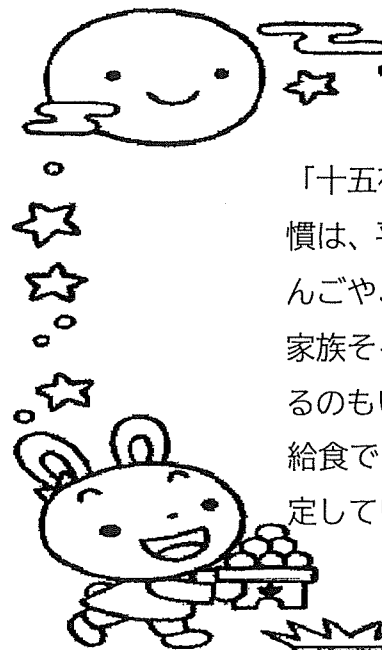 「十五
慣は、
んごや、
家族そ
るのもい
給食で
定して